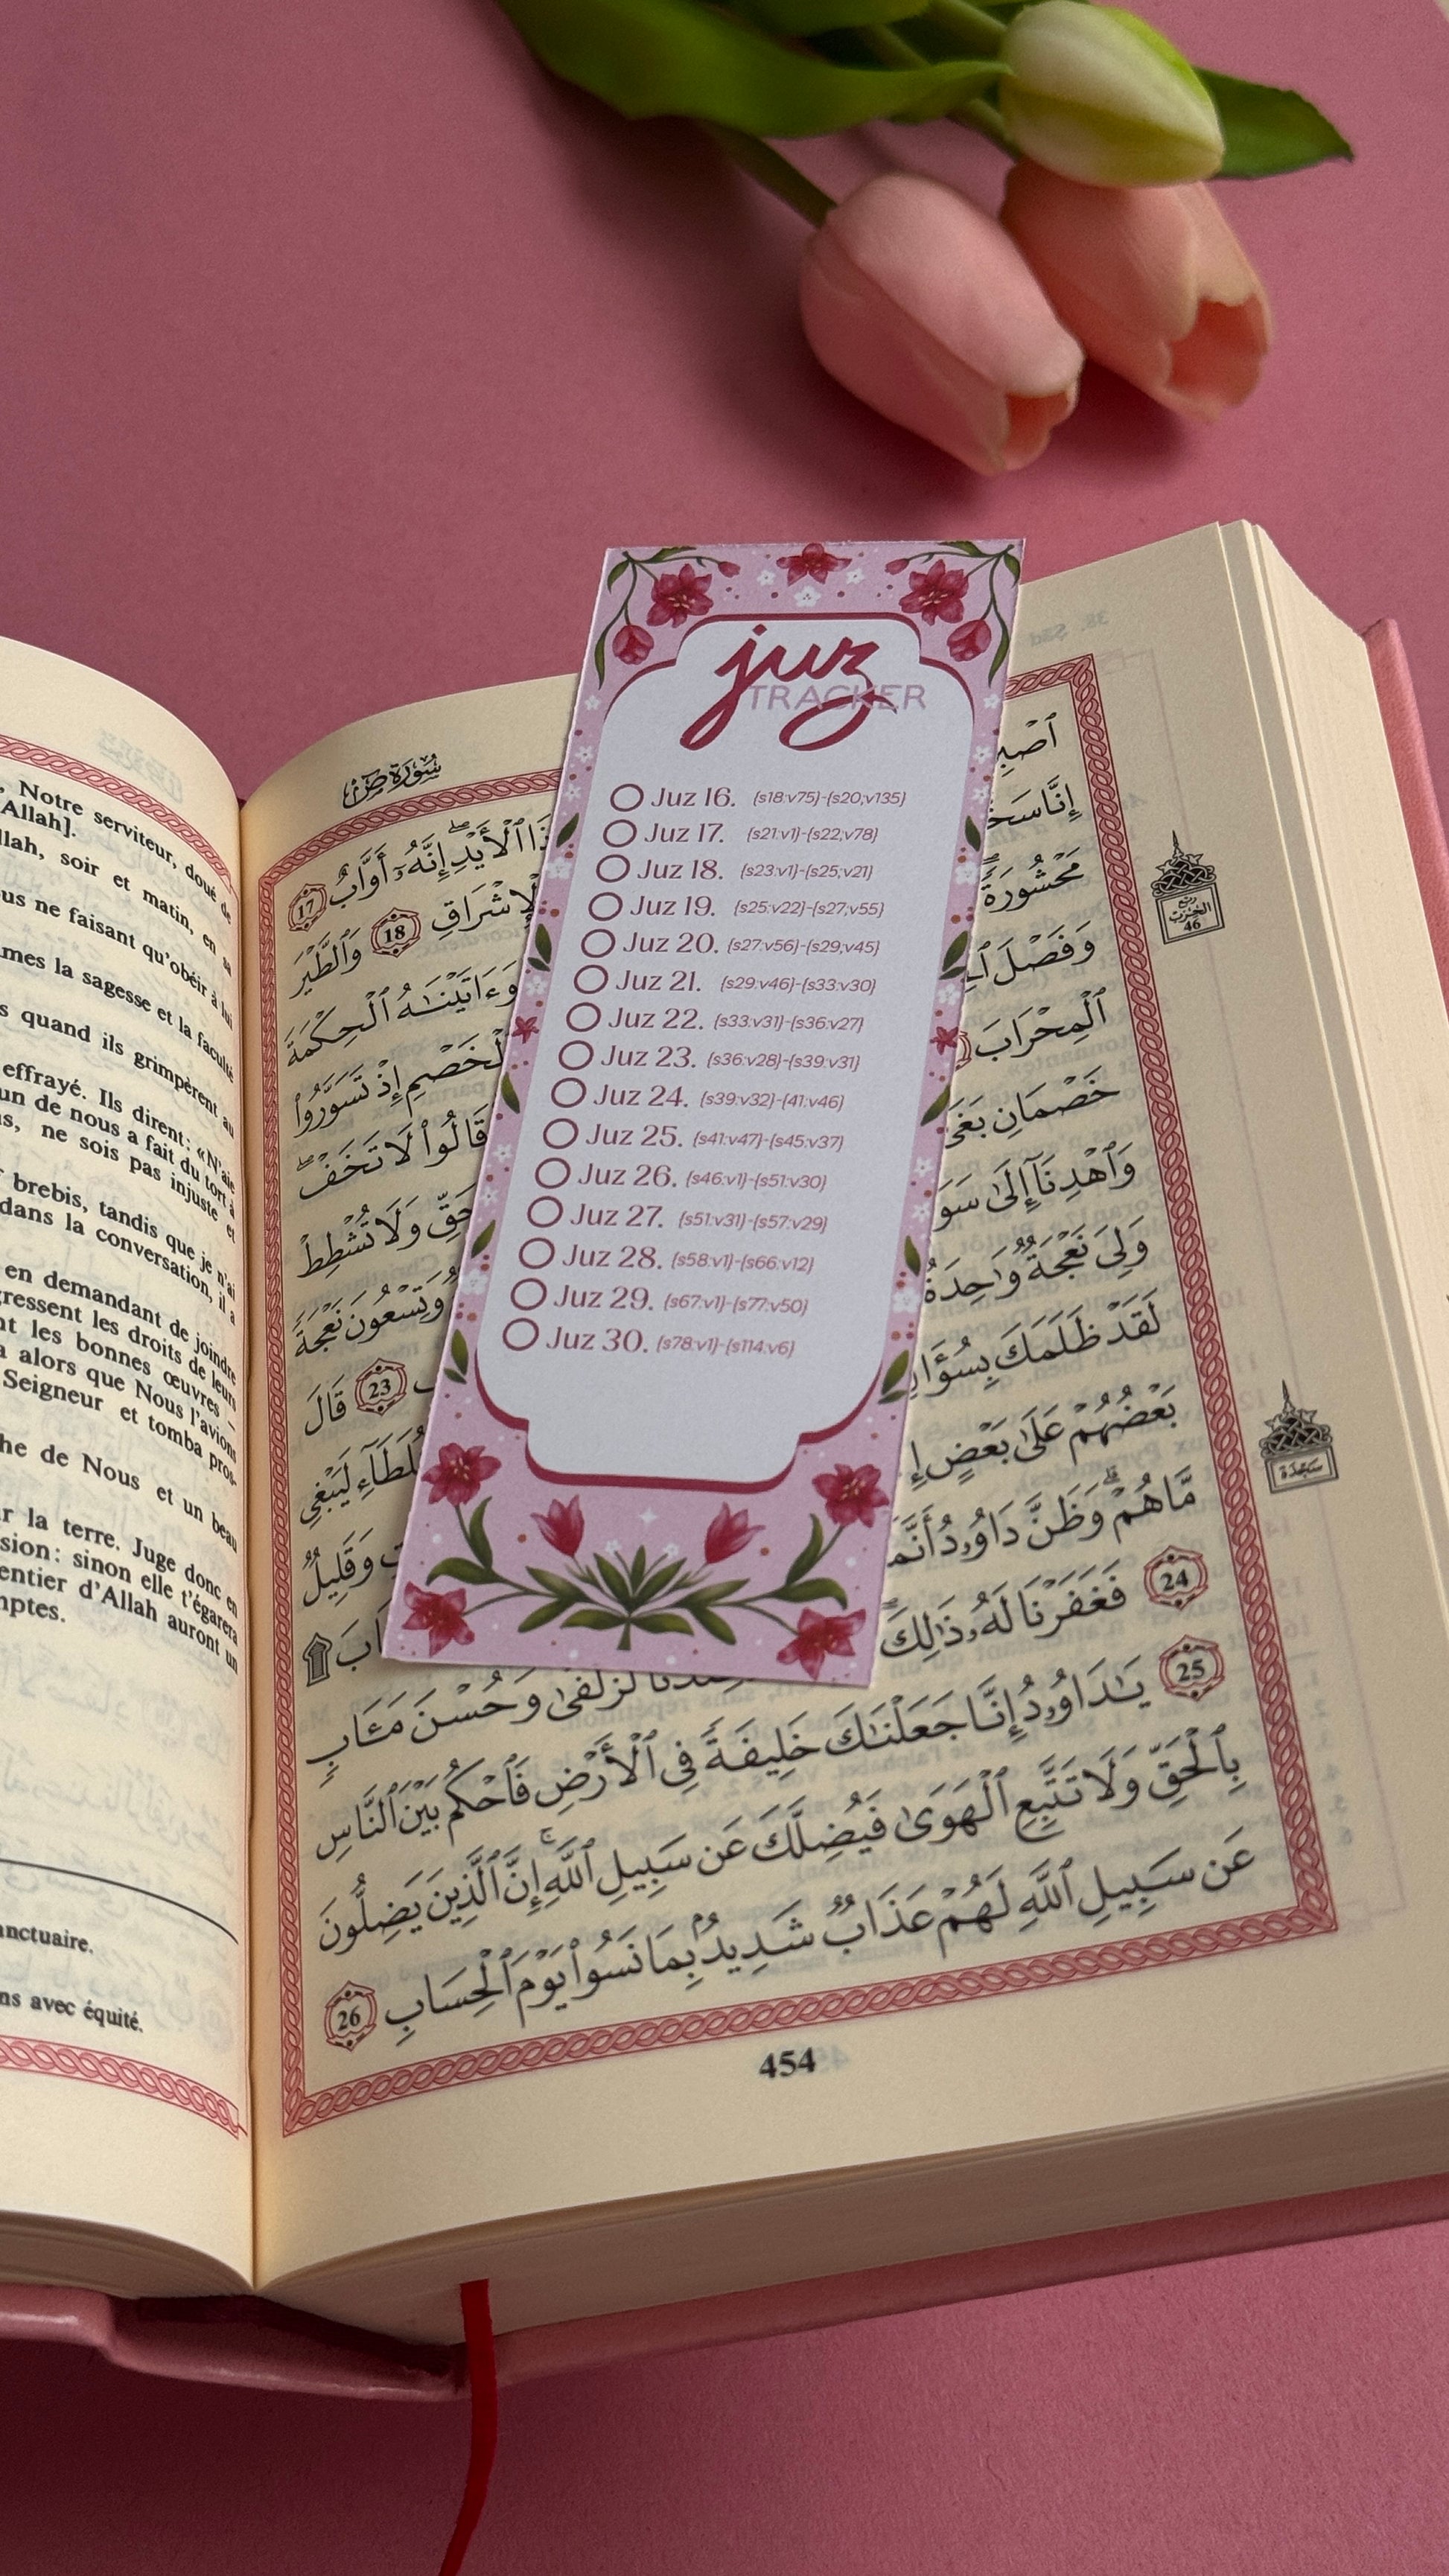 . Notre serviteur, doué de
Allah].
llah, soir et matin, en sa
us ne faisant qu'obéir à lui
mes la sagesse et la faculté
s quand ils grimpèrent au
effrayé. Ils dirent: «N'aie
un de nous a fait du tort à
s, ne sois pas injuste et
brebis, tandis que je n'ai
dans la conversation, il a
en demandant de joindre
gressent les droits de leurs
nt les bonnes œuvres –
a alors que Nous l'avions
Seigneur et tomba pros-
he de Nous et un beau
r la terre. Juge donc en
sion: sinon elle t'égarera
entier d'Allah auront un
mptes.
anctuaire.
ns avec équité.
juz
TRACKER
Juz 16. (s18:v75)-(s20;v135)
Juz 17. (s21:v1)-(s22;v78)
Juz 18. (s23:v1)-(s25;v21)
Juz 19. (s25:v22)-(s27;v55)
Juz 20. (s27:v56)-(s29;v45)
Juz 21. (s29:v46)-(s33:v30)
Juz 22. (s33:v31)-(s36:v27)
Juz 23. (s36:v28)-(s39:v31)
Juz 24. (s39:v32)-(41:v46)
Juz 25. (s41:v47)-(s45:v37)
Juz 26. (s46:v1)-(s51:v30)
Juz 27. (s51:v31)-(s57:v29)
Juz 28. (s58:v1)-(s66:v12)
Juz 29. (s67:v1)-(s77:v50)
Juz 30. (s78:v1)-(s114:v6)
سُورَةُ صٓ
ذَا ٱلْأَيْدِ إِنَّهُۥٓ أَوَّابٌ 17
إِنَّا سَخَّ لْإِشْرَاقِ 18 وَٱلطَّيْرَ
مَحْشُورَةً وَءَاتَيْنَـٰهُ ٱلْحِكْمَةَ
وَفَصْلَ ٱلْخَصْمِ إِذْ تَسَوَّرُوا۟
ٱلْمِحْرَابَ قَالُوا۟ لَا تَخَفْ
خَصْمَانِ بَغَىٰ حَقِّ وَلَا تُشْطِطْ
وَٱهْدِنَآ إِلَىٰ سَوَ وَتِسْعُونَ نَعْجَةً
وَلِىَ نَعْجَةٌ وَٰحِدَةٌ 23 قَالَ
لَقَدْ ظَلَمَكَ بِسُؤَالِ لُطَآءِ لَيَبْغِى
بَعْضُهُمْ عَلَىٰ بَعْضٍ إِ وَقَلِيلٌ
مَّا هُمْ وَظَنَّ دَاوُۥدُ أَنَّمَ ابَ ۩
24 فَغَفَرْنَا لَهُۥ ذَٰلِكَ لَزُلْفَىٰ وَحُسْنَ مَـَٔابٍ
25 يَـٰدَاوُۥدُ إِنَّا جَعَلْنَـٰكَ خَلِيفَةً فِى ٱلْأَرْضِ فَٱحْكُم بَيْنَ ٱلنَّاسِ
بِٱلْحَقِّ وَلَا تَتَّبِعِ ٱلْهَوَىٰ فَيُضِلَّكَ عَن سَبِيلِ ٱللَّهِ إِنَّ ٱلَّذِينَ يَضِلُّونَ
عَن سَبِيلِ ٱللَّهِ لَهُمْ عَذَابٌ شَدِيدٌۢ بِمَا نَسُوا۟ يَوْمَ ٱلْحِسَابِ 26
ربع
الحزب
46
سَجْدَة
454